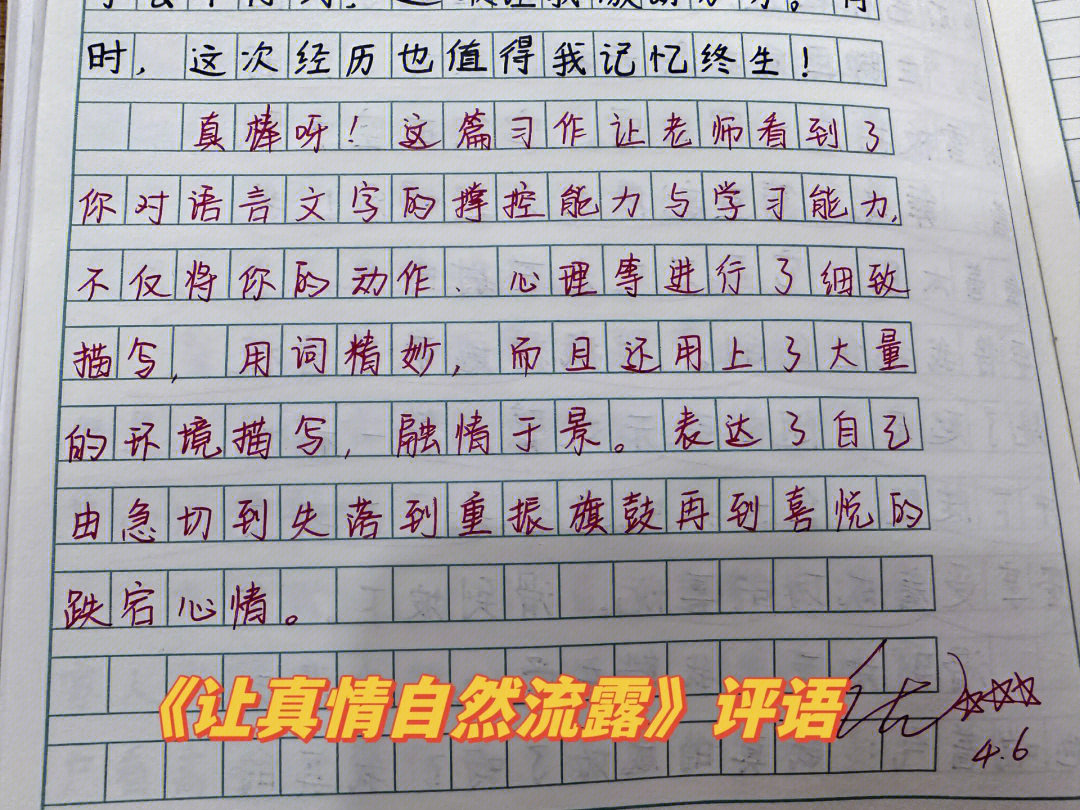 时，这次经历也值得我记忆终生！
真棒呀！这篇习作让老师看到了
你对语言文字的撑控能力与学习能力，
不仅将你的动作、心理等进行了细致
描写，用词精妙，而且还用上了大量
的环境描写，融情于景。表达了自己
由急切到失落到重振旗鼓再到喜悦的
跌宕心情。
《让真情自然流露》评语
优
4.6